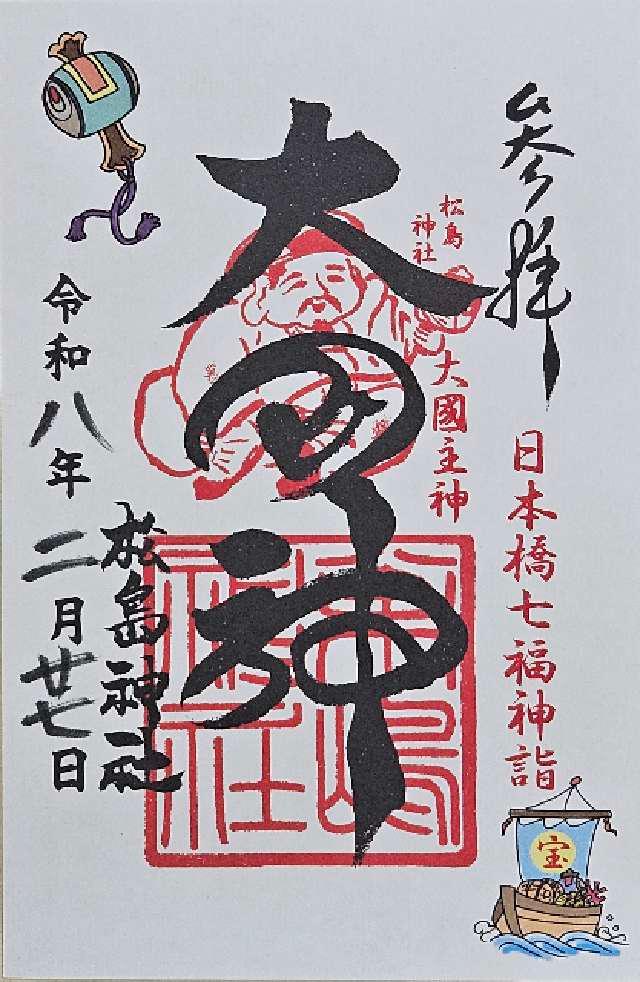 参拝
日本橋七福神詣
松島
神社
大國主神
大国神
松嶋
神社
松島神社
令和八年
二月廿七日
宝